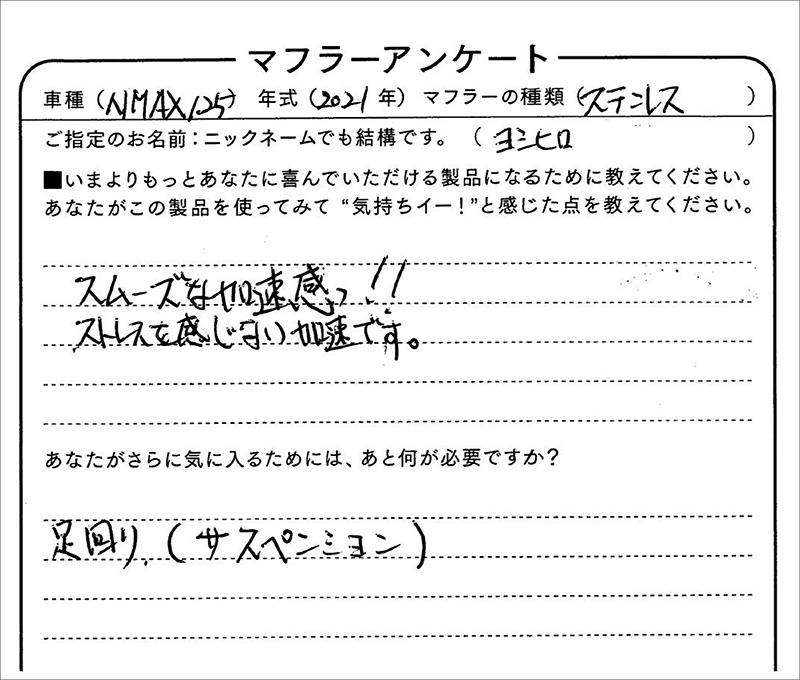 マフラーアンケート
車種（NMAX125） 年式（2021年） マフラーの種類（ステンレス）
ご指定のお名前：ニックネームでも結構です。（ヨシヒロ）
■いまよりもっとあなたに喜んでいただける製品になるために教えてください。
あなたがこの製品を使ってみて“気持ちイー！”と感じた点を教えてください。
スムーズな加速感っ!!
ストレスを感じない加速です。
あなたがさらに気に入るためには、あと何が必要ですか？
足回り.（サスペンション）